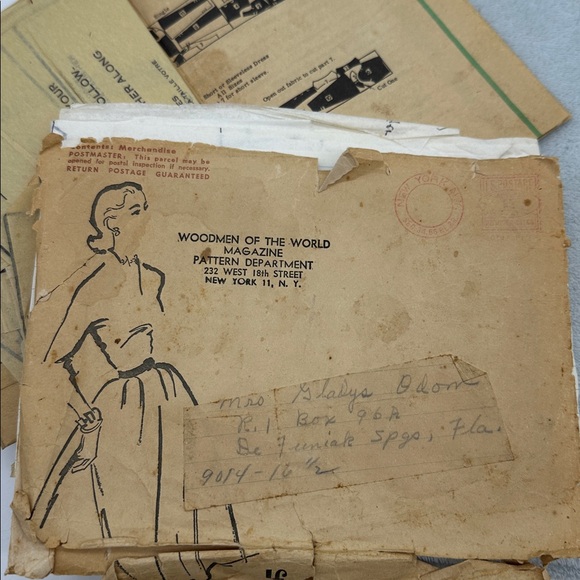 HER ALONG
OLLOW.
OUR
Short or Sleeveless Dress
All Sizes
7 for short sleeve.
Open out fabric to cut part 7.
Cut One
Contents: Merchandise
POSTMASTER: This parcel may be
opened for postal inspection if necessary.
RETURN POSTAGE GUARANTEED
NEW YORK
WOODMEN OF THE WORLD
MAGAZINE
PATTERN DEPARTMENT
232 WEST 18th STREET
NEW YORK 11, N. Y.
Mrs Gladys Odom
R. 1 Box 96A
De Funiak Spgs, Fla.
9014-16 1/2